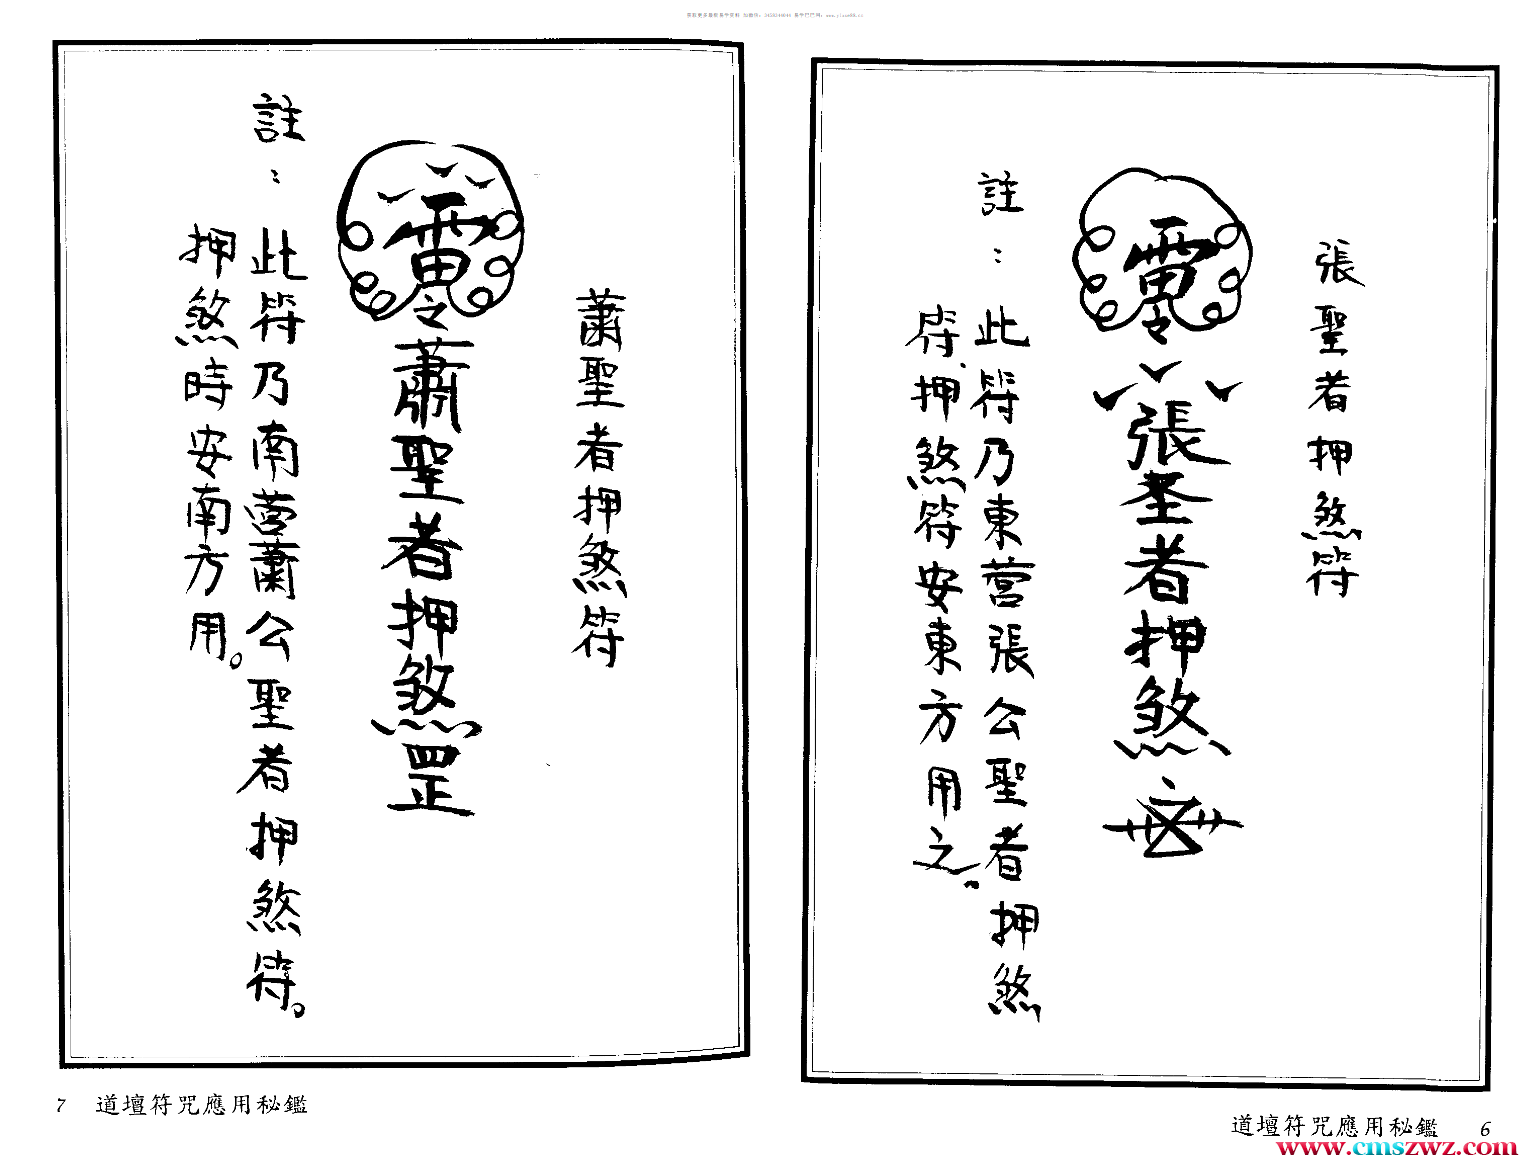 張聖者押煞符
雷令張圣者押煞
註：此符乃東營張公聖者押煞
符、押煞符安東方用之。
道壇符咒應用秘鑑 6
www.cmszwz.com
蕭聖者押煞符
雷令蕭聖者押煞罡
註：此符乃南營蕭公聖者押煞符。
押煞時安南方用。
7 道壇符咒應用秘鑑